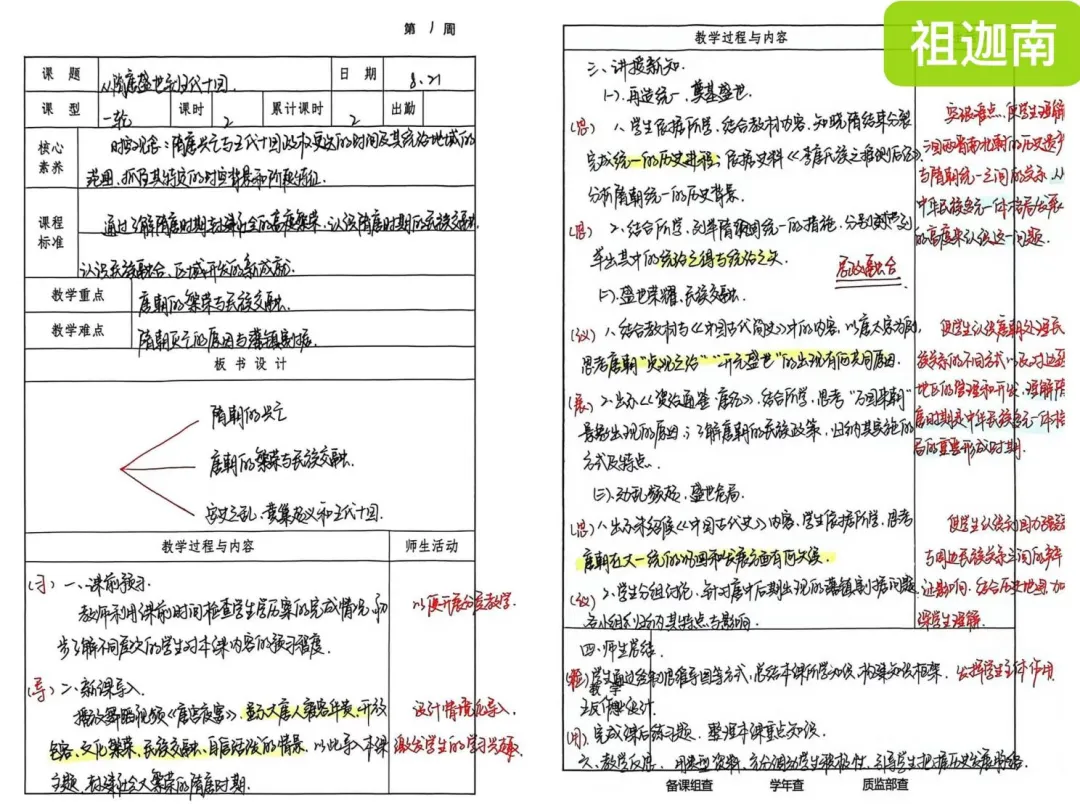 第 1 周
课题 从隋唐盛世到五代十国 日期 8.21
课型 一轮 课时 2 累计课时 2 出勤
核心素养 时空观念：隋唐兴亡与五代十国政权更迭的时间及其统治地域的
范围，抓住其特定的时空背景和阶段特征.
课程标准 通过了解隋唐时期封建社会的高度繁荣，认识隋唐时期的民族交融,
认识民族融合、区域开发的新成就.
教学重点 唐朝的繁荣与民族交融.
教学难点 隋朝灭亡的原因与藩镇割据.
板书设计
隋朝的兴亡
唐朝的繁荣与民族交融.
安史之乱、黄巢起义和五代十国.
教学过程与内容 师生活动
(习) 一、课前预习.
教师利用课前时间检查学生学历案的完成情况，初
步了解不同层次的学生对本课内容的预习程度.
以便开展分层教学.
(导) 二、新课导入.
播放舞蹈视频《唐宫夜宴》，显示大唐人雍容华贵、开放
包容、文化繁荣、民族交融、自信活泼的情景，以此导入本课
主题，封建社会繁荣的隋唐时期.
设计情境化导入,
激发学生的学习兴趣.
祖迦南
教学过程与内容
三、讲授新知.
(一). 再造统一，奠基盛世.
(思) 1、学生依据所学，结合教材内容，知晓隋结束分裂
完成统一的历史进程；依据史料《李唐氏族之推测后记》
分析隋朝统一的历史背景.
(思) 2、结合所学，列举隋巩固统一的措施，分别
举出其中的统治之得与统治之失.
居政融合
突破难点，使学生理解
与隋朝统一之间的关系，从
中华民族多元一体格局发展
的高度来认识这一问题.
(二). 盛世荣耀，民族交融.
(议) 1、结合教材与《中国古代简史》中的内容，以唐太宗为例,
思考唐朝“贞观之治”“开元盛世”的出现有何共同原因.
(展) 2、出示《资治通鉴·唐纪》，结合所学，思考“万国来朝”
景象出现的原因；了解唐朝的民族政策，归纳其实施的
方式及特点.
使学生认识唐朝处理民
族关系的不同方式以及对边疆
地区的管理和开发，理解隋
唐时期是中华民族多元一体格
局的重要形成时期.
(三). 动乱频起，盛世危局.
(思) 1、出示《中国古代史》内容，学生依据所学，思考
唐朝在大一统的巩固和发展方面有何失误.
(议) 2、学生分组讨论，针对唐中后期出现的藩镇割据问题
各小组归纳其特点与影响.
使学生认识到国力强弱
与周边民族关系之间的辩
证影响，结合历史地图，加
深学生理解.
四、师生总结.
学生通过绘制思维导图等方式，总结本课所学知识，构建知识框架. 发挥学生主体作用.
教学
五、作业设计.
(用) 完成课后练习题，整理本课重点知识.
六、教学反思. 用典型资料，充分调动学生积极性，引导学生把握历史发展脉络.
备课组查 学年查 质监部查